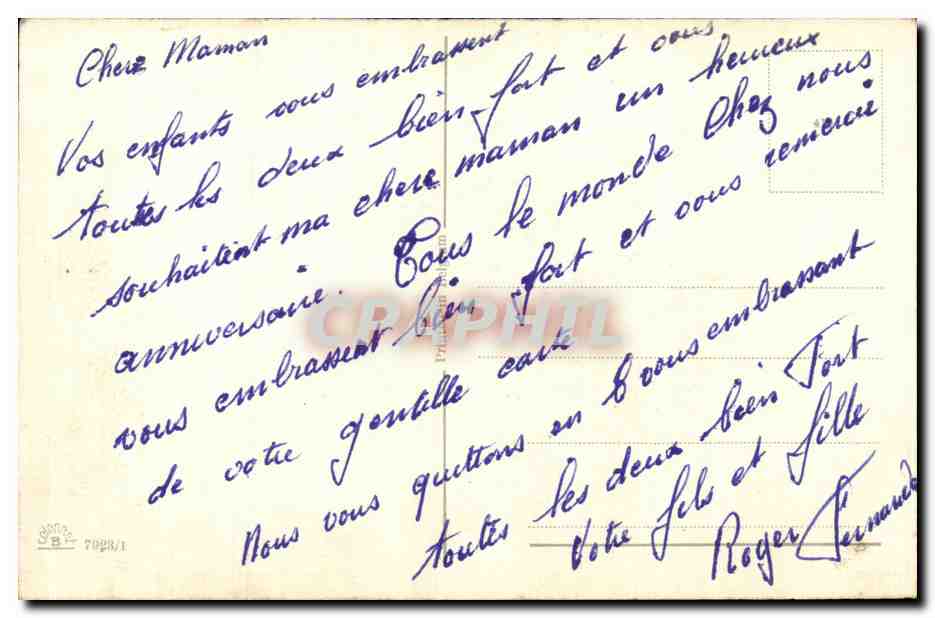 Cherz Maman
Vos enfants vous embrassent
toutes les deux bien fort et vous
souhaitent ma chere maman un heureux
anniversaire. Tous le monde Chez nous
vous embrassent bien fort et vous remercie
de votre gentille carte
Nous vous quittons en vous embrassant
toutes les deux bien Fort
Votre fils et fille
Roger Fernande
CRAPHIL
Printed in Belgium
7023/1